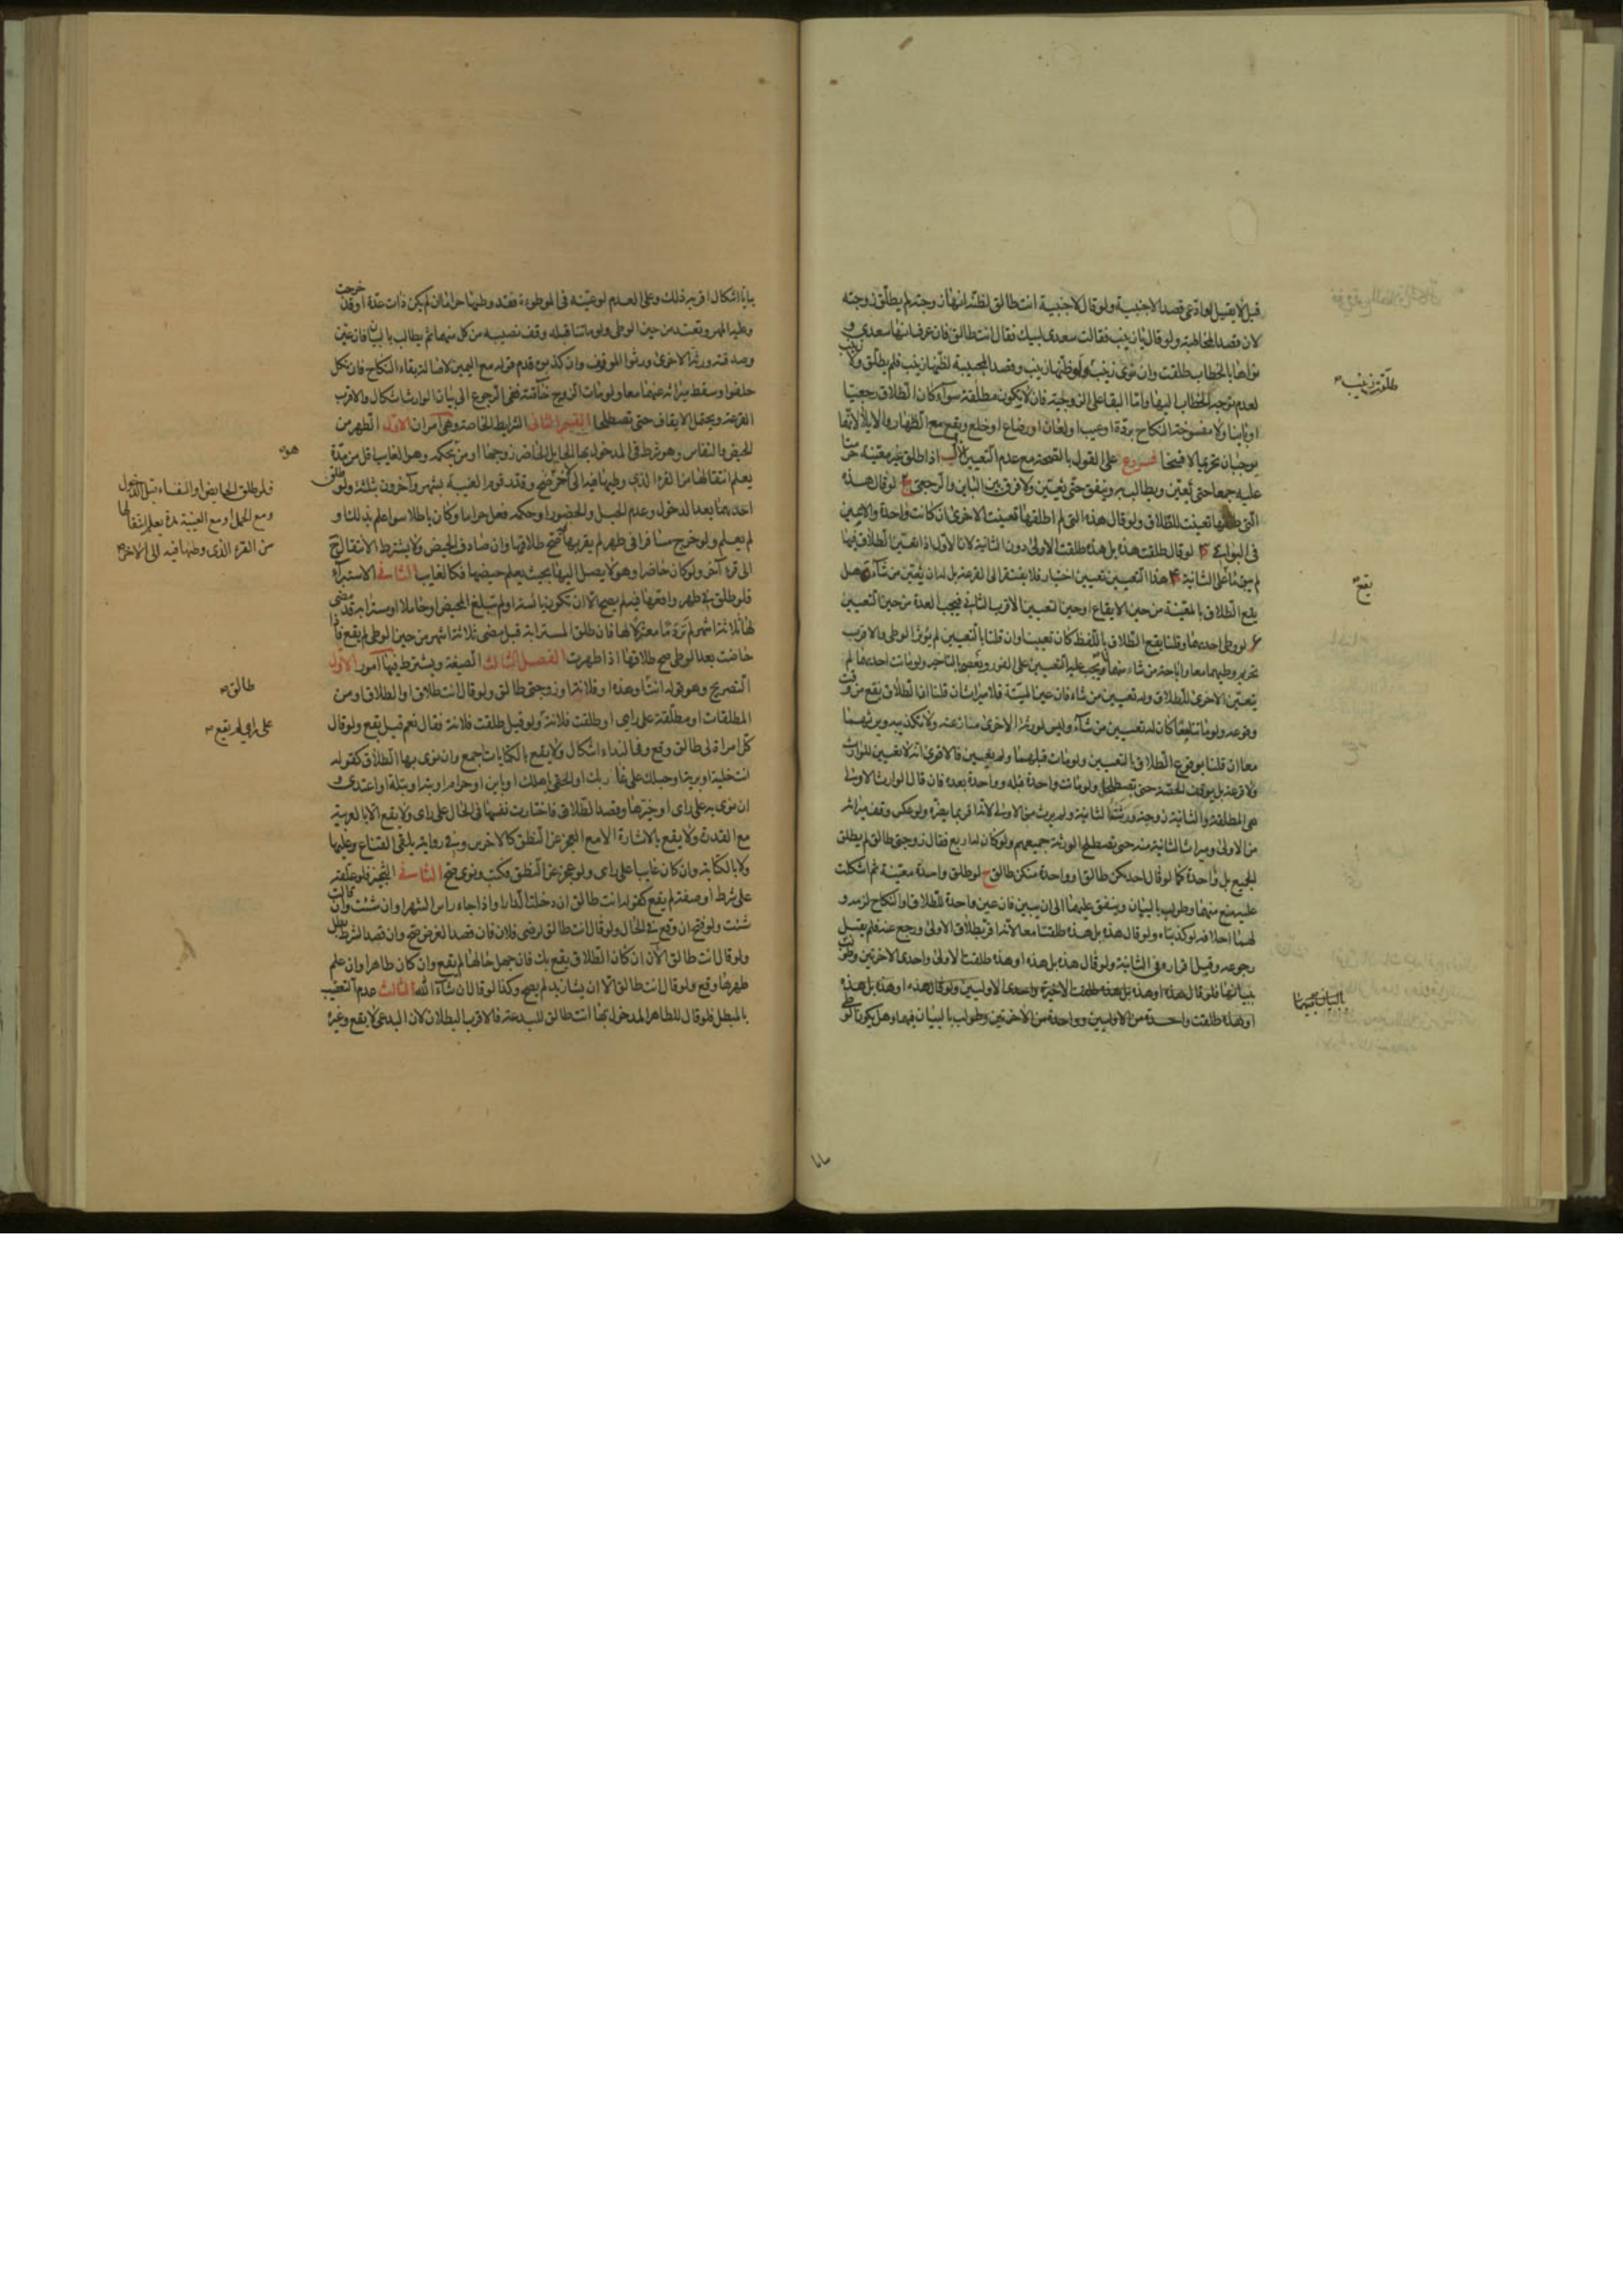 قيل لا يقبل لو ادعى قصد الاجنبية ولو قال لاجنبية انت طالق لظنه انها زوجته لم يطلق زوجته
لانه قصد المخاطبة ولو قال يا زينب فقالت سعدى لبيك فقال انت طالق فان عرف انها سعدى و
نواها بالخطاب طلقت وان نوى زينب طلقت زينب ولو ظنها زينب وقصد المجيبة لظنها زينب فلم يطلق ولا
لعدم توجه الخطاب اليها واما البقا على الزوجية فان لا يكون مطلقة سوآء كان الطلاق رجعيا
او باينا ولا مفسوخة النكاح بردة او عيب او لعان او رضاع او خلع ويقع مع الظهار والايلاء لانهما
يوجبان تحريما لا فسخا فروع على القول بالصحة مع عدم التعيين ا اذا طلق غير معينة حرمتا
عليه جميعا حتى يعين ويطالب به وينفق حتى يعين ولا فرق بين الباين والرجعى ب لو قال هذه
التى طلقتها تعينت للطلاق ولو قال هذه التى لم اطلقها تعينت الاخرى ان كانت واحدة والا عين
فى البواقى ج لو قال طلقت هذه بل هذه طلقت الاولى دون الثانية لان الاولى اذا تعين الطلاق فيها
لم يبق ما على الثانية د هذا التعيين تعيين اختيار فلا يفتقر الى القرعة بل له ان يعين من شآء ه هل
يقع الطلاق بالمعينة من حين الايقاع او حين التعيين الاقرب الثانى فيجب العدة من حين التعيين
و لو وطى احديهما وقلنا يقع الطلاق باللفظ كان تعيينا وان قلنا بالتعيين لم يؤثر الوطى والاقرب
تحريم وطيهما معا واباحة من شاء منهما ز يجب عليه التعيين على الفور ويعصى بالتاخير ولو ماتت احديهما لم
يتعين الاخرى للطلاق وله تعيين من شاء فان عين الميتة فلا ميراث ان قلنا ان الطلاق يقع من وقت
وقوعه ولو ماتتا معا كان له تعيين من شآء وليس لورثة الاخرى منازعته ولا تكذيبه ويرثهما
معا ان قلنا بوقوع الطلاق بالتعيين ولو مات قبلهما ولم يعين فالاقوى انه لا تعيين للوارث
ولا قرعة بل يوقف الحصة حتى يصطلحا ولو ماتت واحدة قبله وواحدة بعده فان قال الوارث الاولى
هى المطلقة والثانية زوجة ورثتها الثانية ولم يرث من الاولى لانه اقر بما يضره ولو عكس وقف ميراثه
من الاولى وميراث الثانية منه حتى يصطلح الورثة جميعهم ولو كان له اربع فقال زوجتى طالق لم يطلق
الجميع بل واحدة كما لو قال احديكن طالق او واحدة منكن طالق ح لو طلق واحدة معينة ثم اشكلت
عليه منع منهما وطولب بالبيان وينفق عليهما الى ان يبين فان عين واحدة للطلاق او النكاح لزمه و
لهما احلافه لو كذبتاه ولو قال هذه بل هذه طلقتا معا لانه اقر بطلاق الاولى ورجع عنه فلم يقبل
رجوعه وقبل اقراره فى الثانية ولو قال هذه بل هذه او هذه طلقت الاولى واحدى الاخرتين وطولب
ببيانها فلو قال هذه او هذه بل هذه طلقت الاخيرة واحدى الاوليين ولو قال هذه او هذه بل هذه
او هذه طلقت واحدة من الاوليين وواحدة من الاخرتين وطولب بالبيان فيهما وهل يكون الوطى
طلقت زينب
يقع
بالبيان فيهما
بيانا اشكال اقربه ذلك وعلى العدم لو عينه فى الموطوءة فقد وطيها حراما ان لم يكن ذات عدة او قد خرجت
وعليه المهر وتعتد من حين الوطى ولو ماتتا قبله وقف نصيبه من كل منهما ثم يطالب بالبيان فان عين
وصدقته ورثة الاخرى ورثوا الموقوف وان كذبوه قدم قوله مع اليمين لاصالة بقاء النكاح فان نكل
حلفوا وسقط ميراثه عنهما معا ولو مات الزوج خاصة ففى الرجوع الى بيان الوارث اشكال والاقرب
القرعة ويحتمل الايقاف حتى تصطلحا القسم الثانى الشرايط الخاصة وهى امران الاول الطهر من
الحيض والنفاس وهو شرط فى المدخول بها الحايل الحاضر زوجها او من بحكمه وهو الغايب اقل من مدة
يعلم انتقالها من القرء الذى وطيها فيه الى آخر صح وقدر قوم الغيبة بشهر وآخرون بثلثة ولو طلق
احديهما بعد الدخول وعدم الحبل والحضور او حكمه فعل حراما وكان باطلا سوا علم بذلك او
لم يعلم ولو خرج مسافرا فى طهر لم يقربها صح طلاقها وان صادف الحيض ولا يشترط الانتقال ح
الى قرء آخر ولو كان حاضرا وهو لا يصل اليها بحيث يعلم حيضها فكالغايب الثانى الاستبرآء
فلو طلق فى طهر واقعها فيه لم يصح الا ان تكون يائسة او لم تبلغ المحيض او حاملا او مسترابة قد مضى
لها ثلاثة اشهر لم تر دما معتزلا لها فان طلق المسترابة قبل مضى ثلاثة اشهر من حين الوطى لم يقع فان
حاضت بعد الوطى صح طلاقها اذا طهرت الفصل الثالث الصيغة ويشترط فيها امور الاول
التصريح وهو قوله انت او هذه او فلانة او زوجتى طالق ولو قال انت طلاق او الطلاق او من
المطلقات او مطلقة على راى او طلقت فلانة ولو قيل طلقت فلانة فقال نعم قيل يقع ولو قال
كل امراة لى طالق وقع وفى النداء اشكال ولا يقع بالكنايات اجمع وان نوى بها الطلاق كقوله
انت خلية او برية او حبلك على غاربك او الحقى باهلك او باين او حرام او بتة او بتلة او اعتدى و
ان نوى به على راى او خيرها وقصد الطلاق فاختارت نفسها فى الحال على راى ولا يقع الا بالعربية
مع القدرة ولا يقع بالاشارة الا مع العجز عن النطق كالاخرس وفى رواية يلقى القناع وعليها
ولا بالكتابة وان كان غايبا على راى ولو عجز عن النطق فكتب ونوى صح الثانى التنجيز فلو علقه
على شرط او صفة لم يقع كقوله انت طالق ان دخلت الدار او اذا جاء راس الشهر او ان شئت وان قالت
شئت ولو فتح ان وقع فى الحال ولو قال انت طالق لرضى فلان فان قصد الغرض صح وان قصد الشرط بطل
ولو قال انت طالق الآن ان كان الطلاق يقع بك فان جهل حالها لم يقع وان كان طاهرا وان علم
طهرها وقع ولو قال انت طالق الا ان يشاء زيد لم يصح وكذا لو قال ان شآء الله الثالث عدم التعقيب
بالمبطل فلو قال للطاهر المدخول بها انت طالق للبدعة فالاقرب البطلان لان البدعى لا يقع وغيره
فلو طلق الحايض او النفساء قبل الدخول
ومع الحمل او مع الغيبة مدة يعلم انتقالها
من القرء الذى وطيها فيه الى الاخر صح
طالق
على راى لم يقع